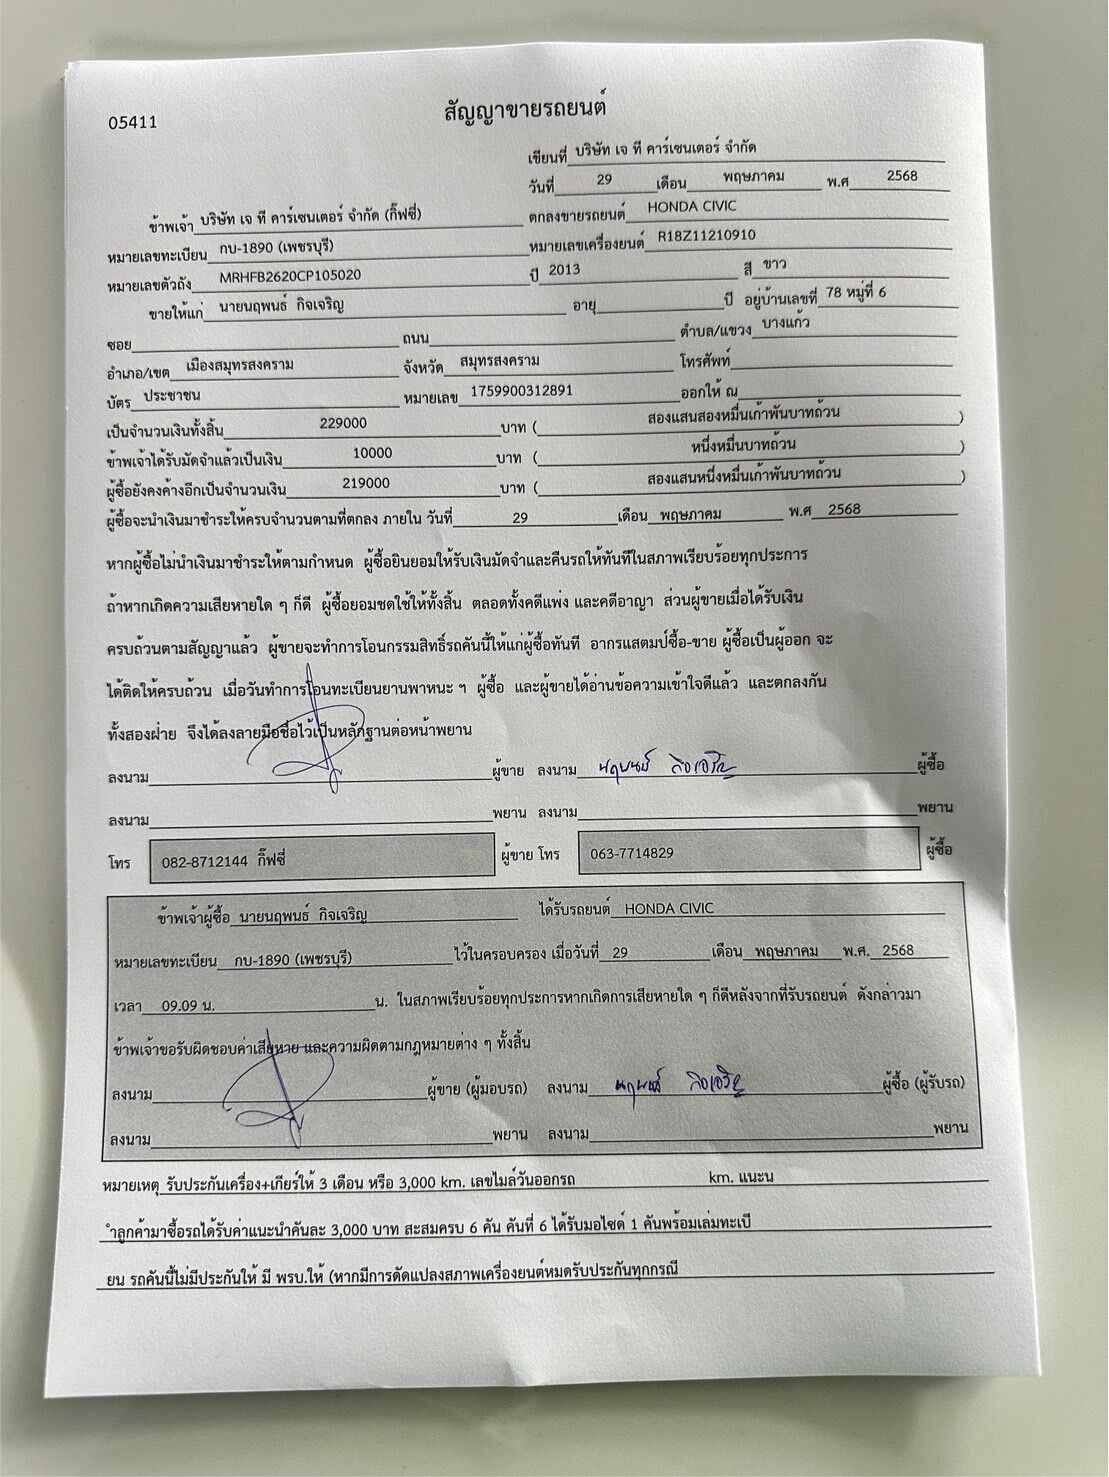 05411
สัญญาขายรถยนต์
เขียนที่ บริษัท เจ ที คาร์เซนเตอร์ จำกัด
วันที่ 29 เดือน พฤษภาคม พ.ศ 2568
ข้าพเจ้า บริษัท เจ ที คาร์เซนเตอร์ จำกัด (กิ๊ฟซี่) ตกลงขายรถยนต์ HONDA CIVIC
หมายเลขทะเบียน กบ-1890 (เพชรบุรี) หมายเลขเครื่องยนต์ R18Z11210910
หมายเลขตัวถัง MRHFB2620CP105020 ปี 2013 สี ขาว
ขายให้แก่ นายนฤพนธ์ กิจเจริญ อายุ ปี อยู่บ้านเลขที่ 78 หมู่ที่ 6
ซอย ถนน ตำบล/แขวง บางแก้ว
อำเภอ/เขต เมืองสมุทรสงคราม จังหวัด สมุทรสงคราม โทรศัพท์
บัตร ประชาชน หมายเลข 1759900312891 ออกให้ ณ
เป็นจำนวนเงินทั้งสิ้น 229000 บาท ( สองแสนสองหมื่นเก้าพันบาทถ้วน )
ข้าพเจ้าได้รับมัดจำแล้วเป็นเงิน 10000 บาท ( หนึ่งหมื่นบาทถ้วน )
ผู้ซื้อยังคงค้างอีกเป็นจำนวนเงิน 219000 บาท ( สองแสนหนึ่งหมื่นเก้าพันบาทถ้วน )
ผู้ซื้อจะนำเงินมาชำระให้ครบจำนวนตามที่ตกลง ภายใน วันที่ 29 เดือน พฤษภาคม พ.ศ 2568
หากผู้ซื้อไม่นำเงินมาชำระให้ตามกำหนด ผู้ซื้อยินยอมให้รับเงินมัดจำและคืนรถให้ทันทีในสภาพเรียบร้อยทุกประการ
ถ้าหากเกิดความเสียหายใด ๆ ก็ดี ผู้ซื้อยอมชดใช้ให้ทั้งสิ้น ตลอดทั้งคดีแพ่ง และคดีอาญา ส่วนผู้ขายเมื่อได้รับเงิน
ครบถ้วนตามสัญญาแล้ว ผู้ขายจะทำการโอนกรรมสิทธิ์รถคันนี้ให้แก่ผู้ซื้อทันที อากรแสตมป์ซื้อ-ขาย ผู้ซื้อเป็นผู้ออก จะ
ได้ติดให้ครบถ้วน เมื่อวันทำการโอนทะเบียนยานพาหนะ ฯ ผู้ซื้อ และผู้ขายได้อ่านข้อความเข้าใจดีแล้ว และตกลงกัน
ทั้งสองฝ่าย จึงได้ลงลายมือชื่อไว้เป็นหลักฐานต่อหน้าพยาน
ลงนาม ผู้ขาย ลงนาม นฤพนธ์ กิจเจริญ ผู้ซื้อ
ลงนาม พยาน ลงนาม พยาน
โทร 082-8712144 กิ๊ฟซี่ ผู้ขาย โทร 063-7714829 ผู้ซื้อ
ข้าพเจ้าผู้ซื้อ นายนฤพนธ์ กิจเจริญ ได้รับรถยนต์ HONDA CIVIC
หมายเลขทะเบียน กบ-1890 (เพชรบุรี) ไว้ในครอบครอง เมื่อวันที่ 29 เดือน พฤษภาคม พ.ศ. 2568
เวลา 09.09 น. น. ในสภาพเรียบร้อยทุกประการหากเกิดการเสียหายใด ๆ ก็ดีหลังจากที่รับรถยนต์ ดังกล่าวมา
ข้าพเจ้าขอรับผิดชอบค่าเสียหาย และความผิดตามกฎหมายต่าง ๆ ทั้งสิ้น
ลงนาม ผู้ขาย (ผู้มอบรถ) ลงนาม นฤพนธ์ กิจเจริญ ผู้ซื้อ (ผู้รับรถ)
ลงนาม พยาน ลงนาม พยาน
หมายเหตุ รับประกันเครื่อง+เกียร์ให้ 3 เดือน หรือ 3,000 km. เลขไมล์วันออกรถ km. แนะน
ำลูกค้ามาซื้อรถได้รับค่าแนะนำคันละ 3,000 บาท สะสมครบ 6 คัน คันที่ 6 ได้รับมอไซด์ 1 คันพร้อมเล่มทะเบี
ยน รถคันนี้ไม่มีประกันให้ มี พรบ.ให้ (หากมีการดัดแปลงสภาพเครื่องยนต์หมดรับประกันทุกกรณี